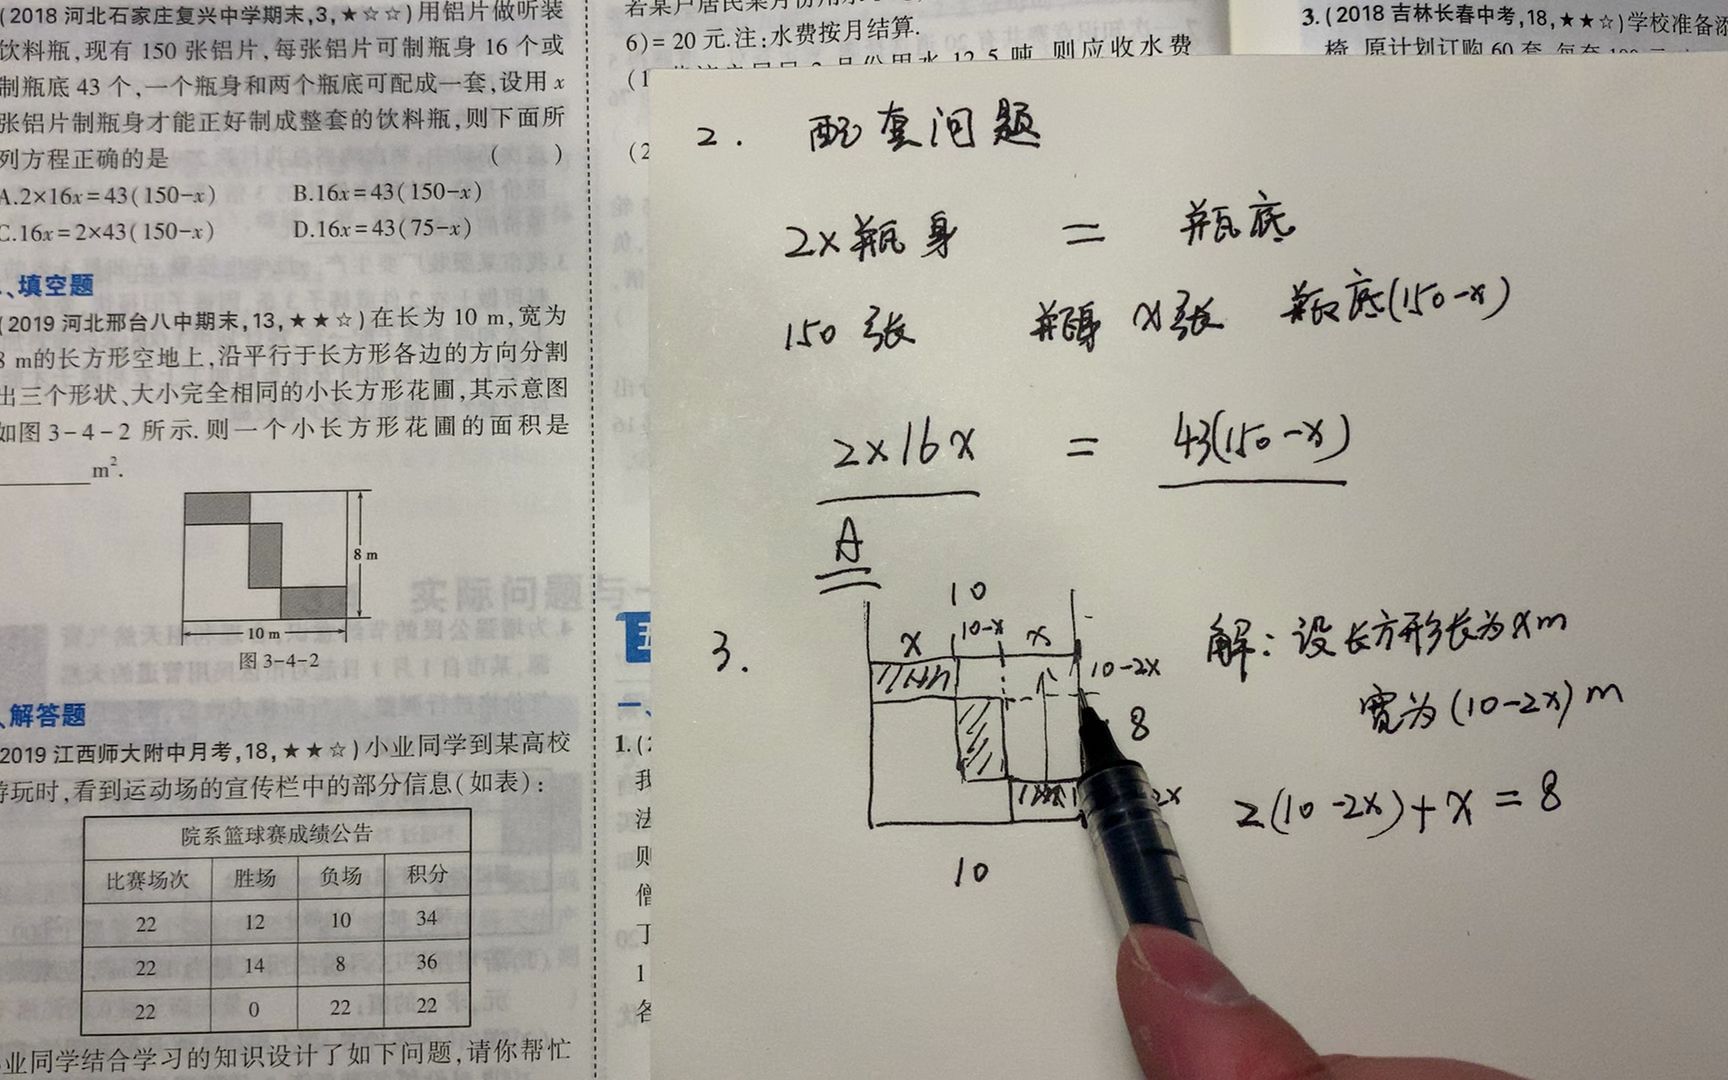 (2018 河北石家庄复兴中学期末,3,★☆☆)用铝片做听装
饮料瓶,现有 150 张铝片,每张铝片可制瓶身 16 个或
制瓶底 43 个,一个瓶身和两个瓶底可配成一套,设用 x
张铝片制瓶身才能正好制成整套的饮料瓶,则下面所
列方程正确的是 ( )
A.2×16x=43(150-x) B.16x=43(150-x)
C.16x=2×43(150-x) D.16x=43(75-x)
、填空题
(2019 河北邢台八中期末,13,★★☆)在长为 10 m,宽为
8 m的长方形空地上,沿平行于长方形各边的方向分割
出三个形状、大小完全相同的小长方形花圃,其示意图
如图 3-4-2 所示.则一个小长方形花圃的面积是
m².
8 m
10 m
图 3-4-2
、解答题
2019 江西师大附中月考,18,★★☆)小业同学到某高校
游玩时,看到运动场的宣传栏中的部分信息(如表):
院系篮球赛成绩公告
比赛场次 胜场 负场 积分
22 12 10 34
22 14 8 36
22 0 22 22
业同学结合学习的知识设计了如下问题,请你帮忙
6)=20 元.注:水费按月结算.
(1
(2
一、
1.(
我
法
则
僧
丁
1
各
3.(2018 吉林长春中考,18,★★☆)学校准备添
2. 配套问题
2×瓶身 = 瓶底
150 张 瓶身 x张 瓶底(150-x)
2×16x = 43(150-x)
A
3.
10
x 10-x x
10-2x
8
2x
10
解:设长方形长为xm
宽为(10-2x)m
2(10-2x)+x=8